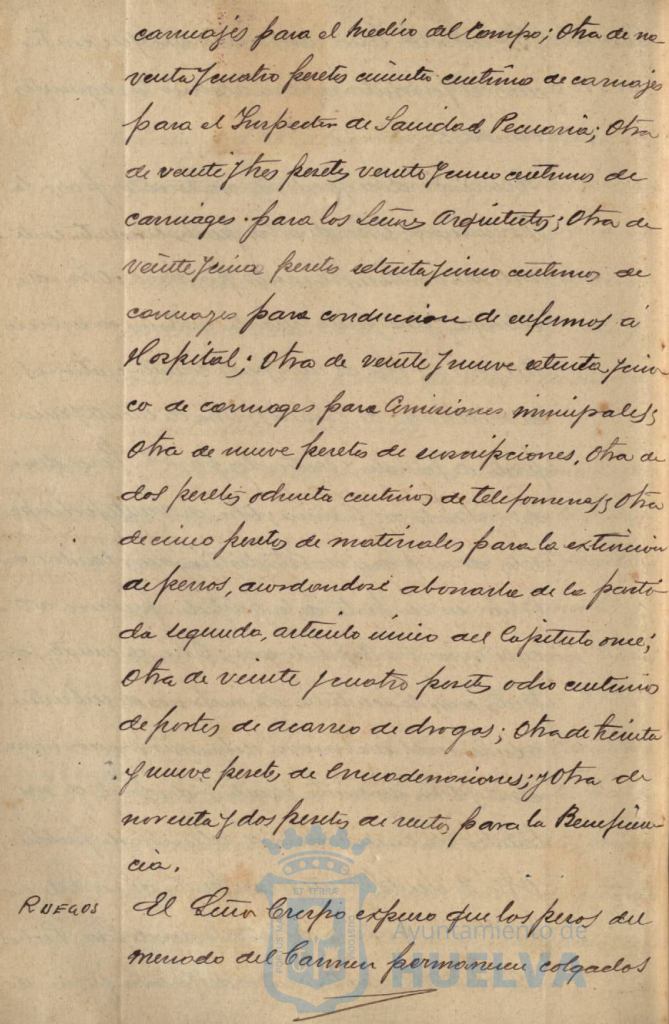 carruajes para el Medico del Campo; Otra de no-
venta y cuatro pesetas cincuenta centimos de carruajes
para el Inspector de Sanidad Pecuaria; Otra
de veinte y tres pesetas veinte y cinco centimos de
carruages para los Señores Arquitectos; Otra de
veinte y cinco pesetas setenta y cinco centimos de
carruajes para conduccion de enfermos á
Hospital; Otra de veinte y nueve setenta y cin-
co de carruages para Comisiones municipales;
Otra de nueve pesetas de suscripciones, Otra de
dos pesetas ochenta centimos de telefonemas; Otra
de cinco pesetas de materiales para la extincion
de perros, acordandose abonarla de la parti-
da segunda, articulo único del Capitulo once;
Otra de veinte y cuatro pesetas ocho centimos
de portes de acarreo de drogas; Otra de treinta
y nueve pesetas de Encuadernaciones; y Otra de
noventa y dos pesetas de para la Beneficen-
cia.
RUEGOS El Señor Crespo expuso que los pesos del
mercado del Carmen permanecen colgados
Ayuntamiento de
HUELVA